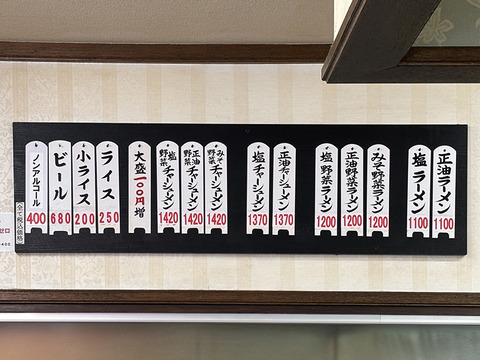 正油ラーメン 1100
塩ラーメン 1100
みそ野菜ラーメン 1200
正油野菜ラーメン 1200
塩野菜ラーメン 1200
正油チャーシューメン 1370
塩チャーシューメン 1370
みそ野菜チャーシューメン 1420
正油野菜チャーシューメン 1420
塩野菜チャーシューメン 1420
大盛一〇〇円増
ライス 250
小ライス 200
ビール 680
ノンアルコール 400
全て税込価格